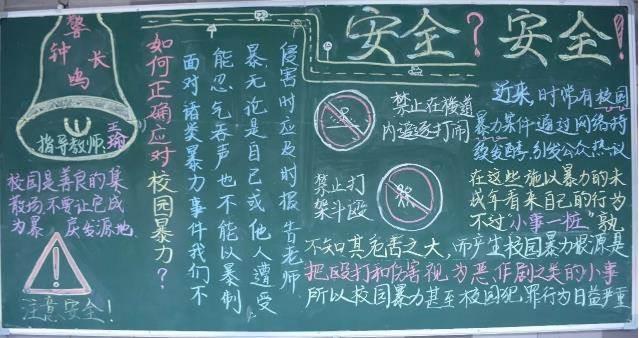 警钟长鸣
指导教师
校园是善良的集
散场不要让它成
为暴 戾发源地
注意安全!
如何正确应对校园暴力?
面对诸类暴力事件我们不
能忍气吞声也不能以暴制
暴无论是自己或他人遭受
侵害时应及时报告老师
安全?安全!
禁止在楼道
内追逐打闹
禁止打
架斗殴
近来时常有校园
暴力案件通过网络持
续发酵,引发公众热议
在这些施以暴力的未
成年看来自己的行为
不过"小事一桩"孰
不知其危害之大,而产生校园暴力根源是
把殴打和伤害视为恶作剧之类的小事
所以校园暴力甚至校园犯罪行为日益严重